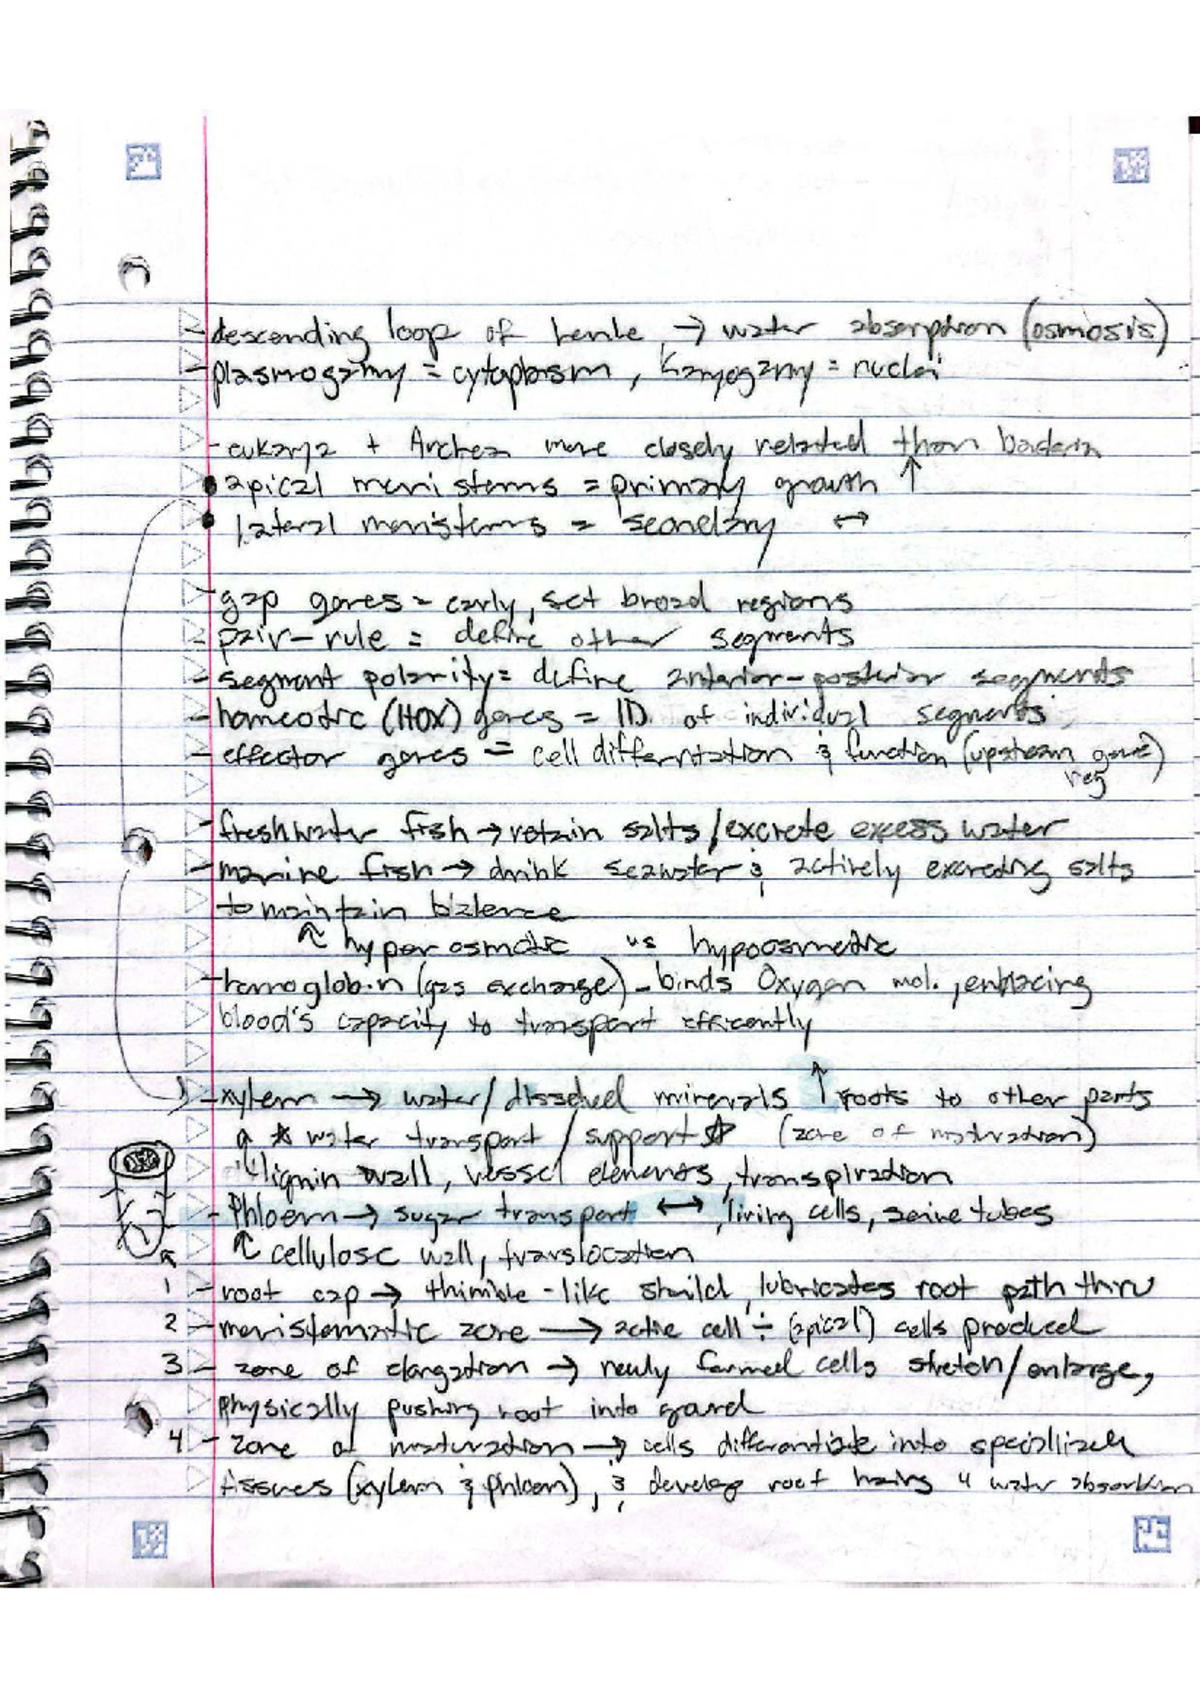 - descending loop of henle, → water absorption (osmosis)
- plasmogamy = cytoplasm, Karyogamy = nuclei
- eukarya + Archea more closely related than bacteria
• apical meristems = primary growth ↑
• Lateral meristems = secondary ↔
- gap genes = early, set broad regions
- pair-rule = define other segments
- segment polarity = define anterior-posterior segments
- homeotic (HOX) genes = ID of individual segments
- effector genes = cell differntation & function (upstream gene)
reg
- freshwater fish → retain salts/excrete excess water
- marine fish → drink seawater & actively excreting salts
to maintain balence
↑ hyper osmotic vs hypoosmotic
- hemoglobin (gas exchange) - binds Oxygen mol., enhacing
blood's capacity to transport efficently
- xylem → water/dissolved minerals ↑ roots to other parts
☆ water transport/support ☆ (zone of maturation)
lignin wall, vessel elements, transpiration
- Phloem → sugar transport ↔, living cells, seive tubes
↑ cellulose wall, translocation
1 - root cap → thimble-like sheild, lubricates root path thru
2 - meristematic zone → active cell ÷ (apical) cells produced
3 - zone of elongation → newly formed cells stretch/enlarge,
physically pushing root into
4 - zone of maturation → cells differentiate into specialized
tissues (xylem & phloem), & develop root hairs 4 water absorbtion